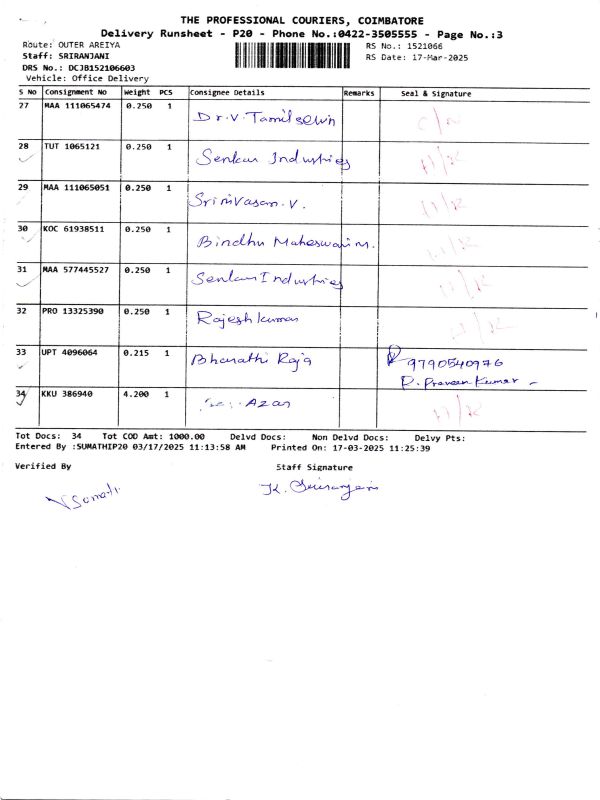 THE PROFESSIONAL COURIERS, COIMBATORE
Delivery Runsheet - P20 - Phone No.:0422-3505555 - Page No.:3
Route: OUTER AREIYA
RS No.: 1521066
Staff: SRIRANJANI
RS Date: 17-Mar-2025
DRS No.: DCJB152106603
Vehicle: Office Delivery
S No Consignment No Weight PCS Consignee Details Remarks Seal & Signature
27 MAA 111065474 0.250 1 Dr.V.Tamilselvn
28 TUT 1065121 0.250 1 Senkan Industries
29 MAA 111065051 0.250 1 Srinivasan.V.
30 KOC 61938511 0.250 1 Bindhu Maheswari M.
31 MAA 577445527 0.250 1 Senkan Industries
32 PRO 13325390 0.250 1 Rajeshkumar
33 UPT 4096064 0.215 1 Bharathi Raja 9790540976
R. Praveen Kumar
34 KKU 386940 4.200 1 Azar
Tot Docs: 34 Tot COD Amt: 1000.00 Delvd Docs: Non Delvd Docs: Delvy Pts:
Entered By :SUMATHIP20 03/17/2025 11:13:58 AM Printed On: 17-03-2025 11:25:39
Verified By Staff Signature
V Sumathi K. Sriranjani